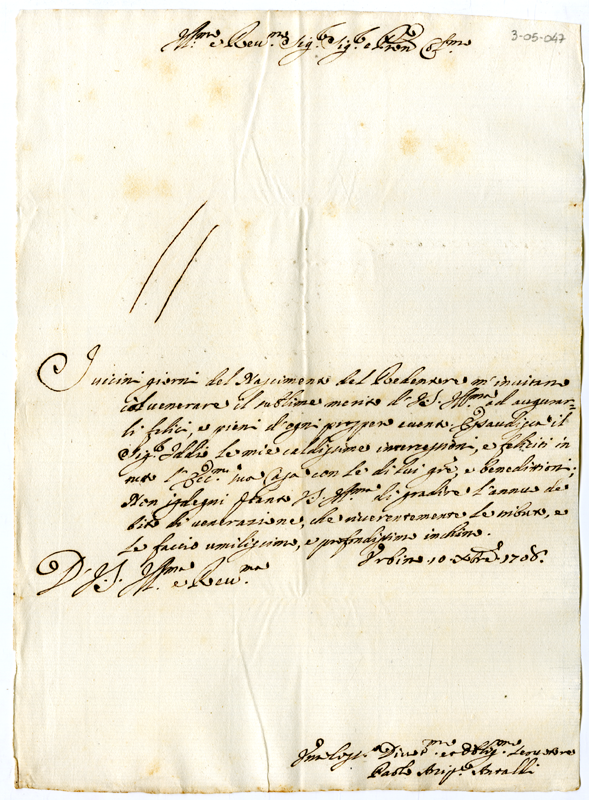 3-05-047
Ill.mo e Rev.mo Sig.r Sig.r e Pron Col.mo
I vicini giorni del Nascimento del Redentore m'invitano
à venerare il sublime merito d' V.S. Ill.ma ad augurar-
li felici, e pieni d'ogni prospero evento. Esaudisca il
Sig.r Iddio le mie caldissime intercessioni, e feliciti in
tutto l'Ecc.ma sua Casa con le di lui gr.e, e benedittioni;
Non isdegni V.S. Ill.ma di gradire l'annuo de
bito di venerazione, che riverentemente le tributo, e
le faccio umilissimo, e profondissimo inchino.
Urbino 10 Xbre 1708.
D' V.S. Ill.ma e Rev.ma
Divot.mo et Oblig.mo Servitore
Paolo Antaldi